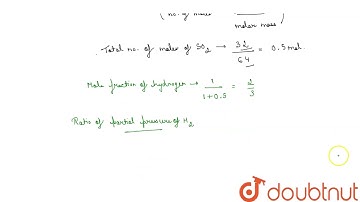 (no. of moles
molar mass)
Total no. of moles of SO2 → 32/64 = 0.5 mol.
Mole fraction of hydrogen → 1/1+0.5 = 2/3
Ratio of partial pressure of H2
doubtnut